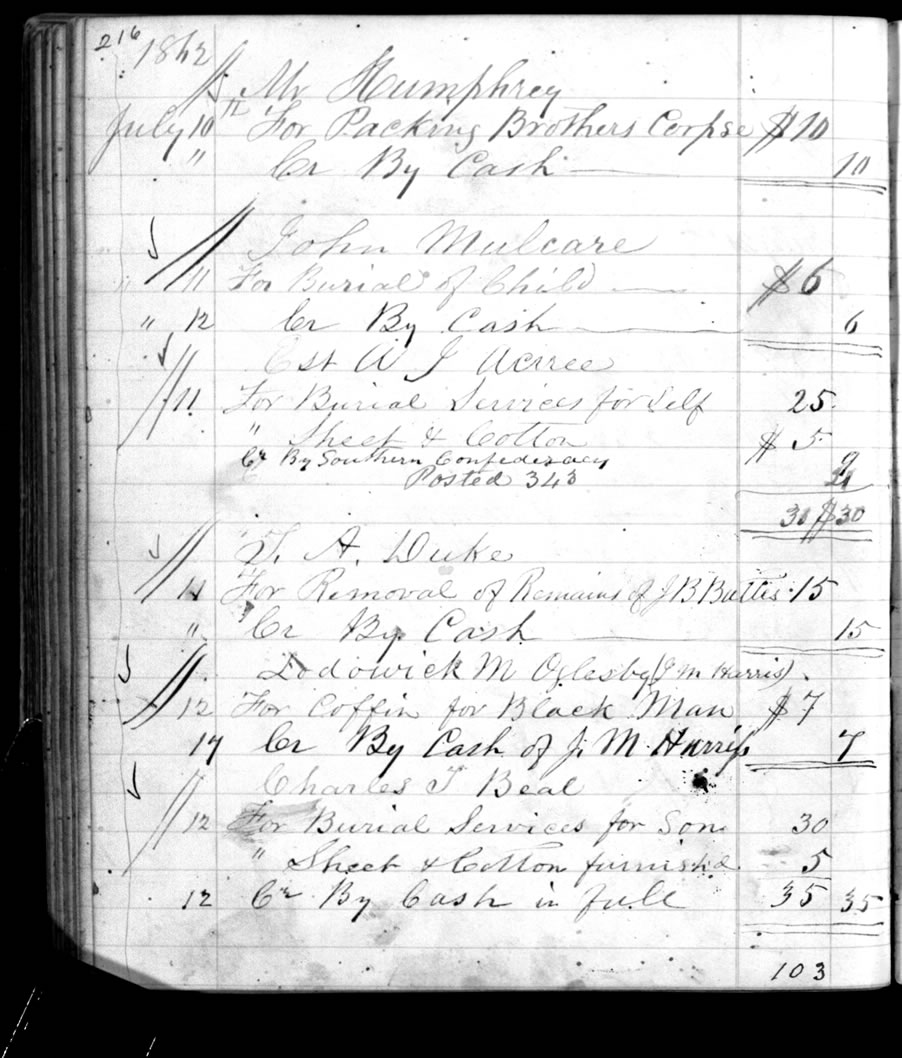 216
1862
Mr Humphrey
July 10th For Packing Brothers Corpse $10
" Cr By Cash 10
John Mulcare
" 11 For Burial of Child $6
" 12 Cr By Cash 6
Est A J
11 For Burial Services for Self 25
" Sheet & Cotton $5
Cr By Southern Confederacy 9
Posted 343 21
30 $30
T. A. Duke
11 For Removal of Remains of J B Battis 15
" Cr By Cash 15
Lodowick M Oglesby (J M Harris)
12 For Coffin for Black Man $7
17 Cr By Cash of J. M. Harris 7
Charles T Beal
12 For Burial Services for Son 30
" Sheet & Cotton furnished 5
12 Cr By Cash in full 35 35
103